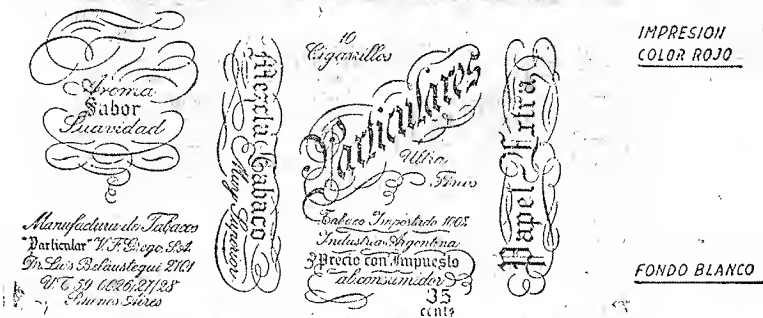 Aroma
Sabor
Suavidad
Manufactura de Tabacos
"Particular" V.F. Grego. S.A.
Dr. Luis Belaustegui 2701
U.T. 59 0026/27/28
Buenos Aires
Mezcla Tabaco
Muy Superior
10
Cigarrillos
Particulares
Ultra
Finos
Tabaco Importado 100%
Industria Argentina
Precio con Impuesto
al consumidor
35
cents
Papel Extra
IMPRESION
COLOR ROJO
FONDO BLANCO